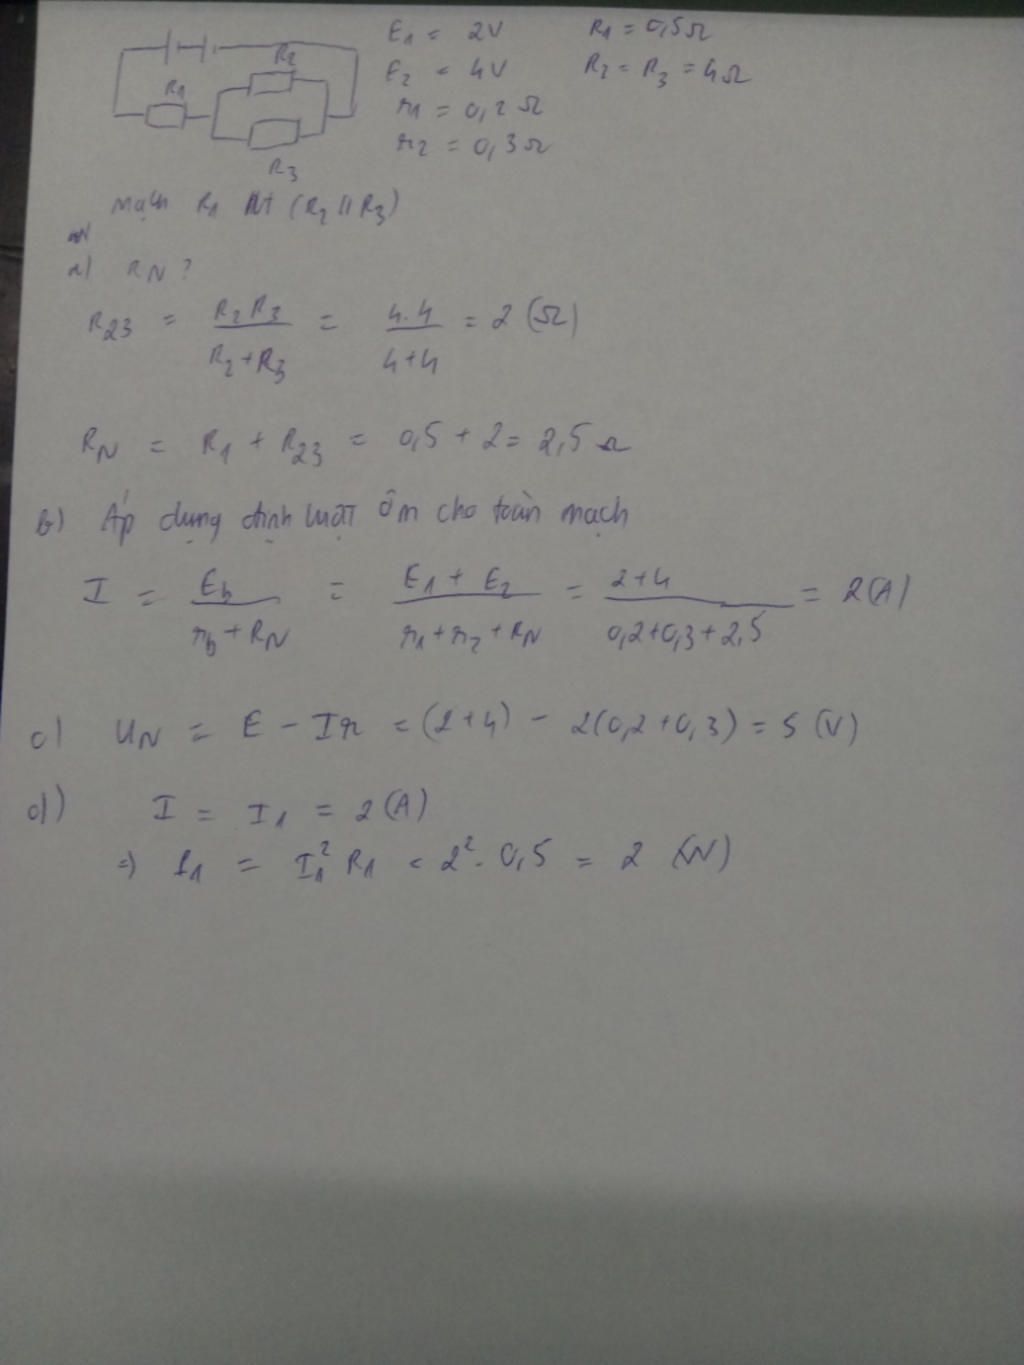 E1 = 2V R1 = 0,5Ω
E2 = 4V R2 = R3 = 4Ω
r1 = 0,2Ω
r2 = 0,3Ω
R2
R1
R3
Mạch R1 Nt (R2 // R3)
a) RN ?
R23 = R2 R3 / R2 + R3 = 4.4 / 4+4 = 2 (Ω)
RN = R1 + R23 = 0,5 + 2 = 2,5 Ω
b) Áp dụng định luật Ôm cho toàn mạch
I = Eb / rb + RN = E1 + E2 / r1 + r2 + RN = 2+4 / 0,2+0,3+2,5 = 2(A)
c) UN = E - Ir = (2+4) - 2(0,2+0,3) = 5 (V)
d) I = I1 = 2(A)
=> P1 = I1² R1 = 2². 0,5 = 2 (W)